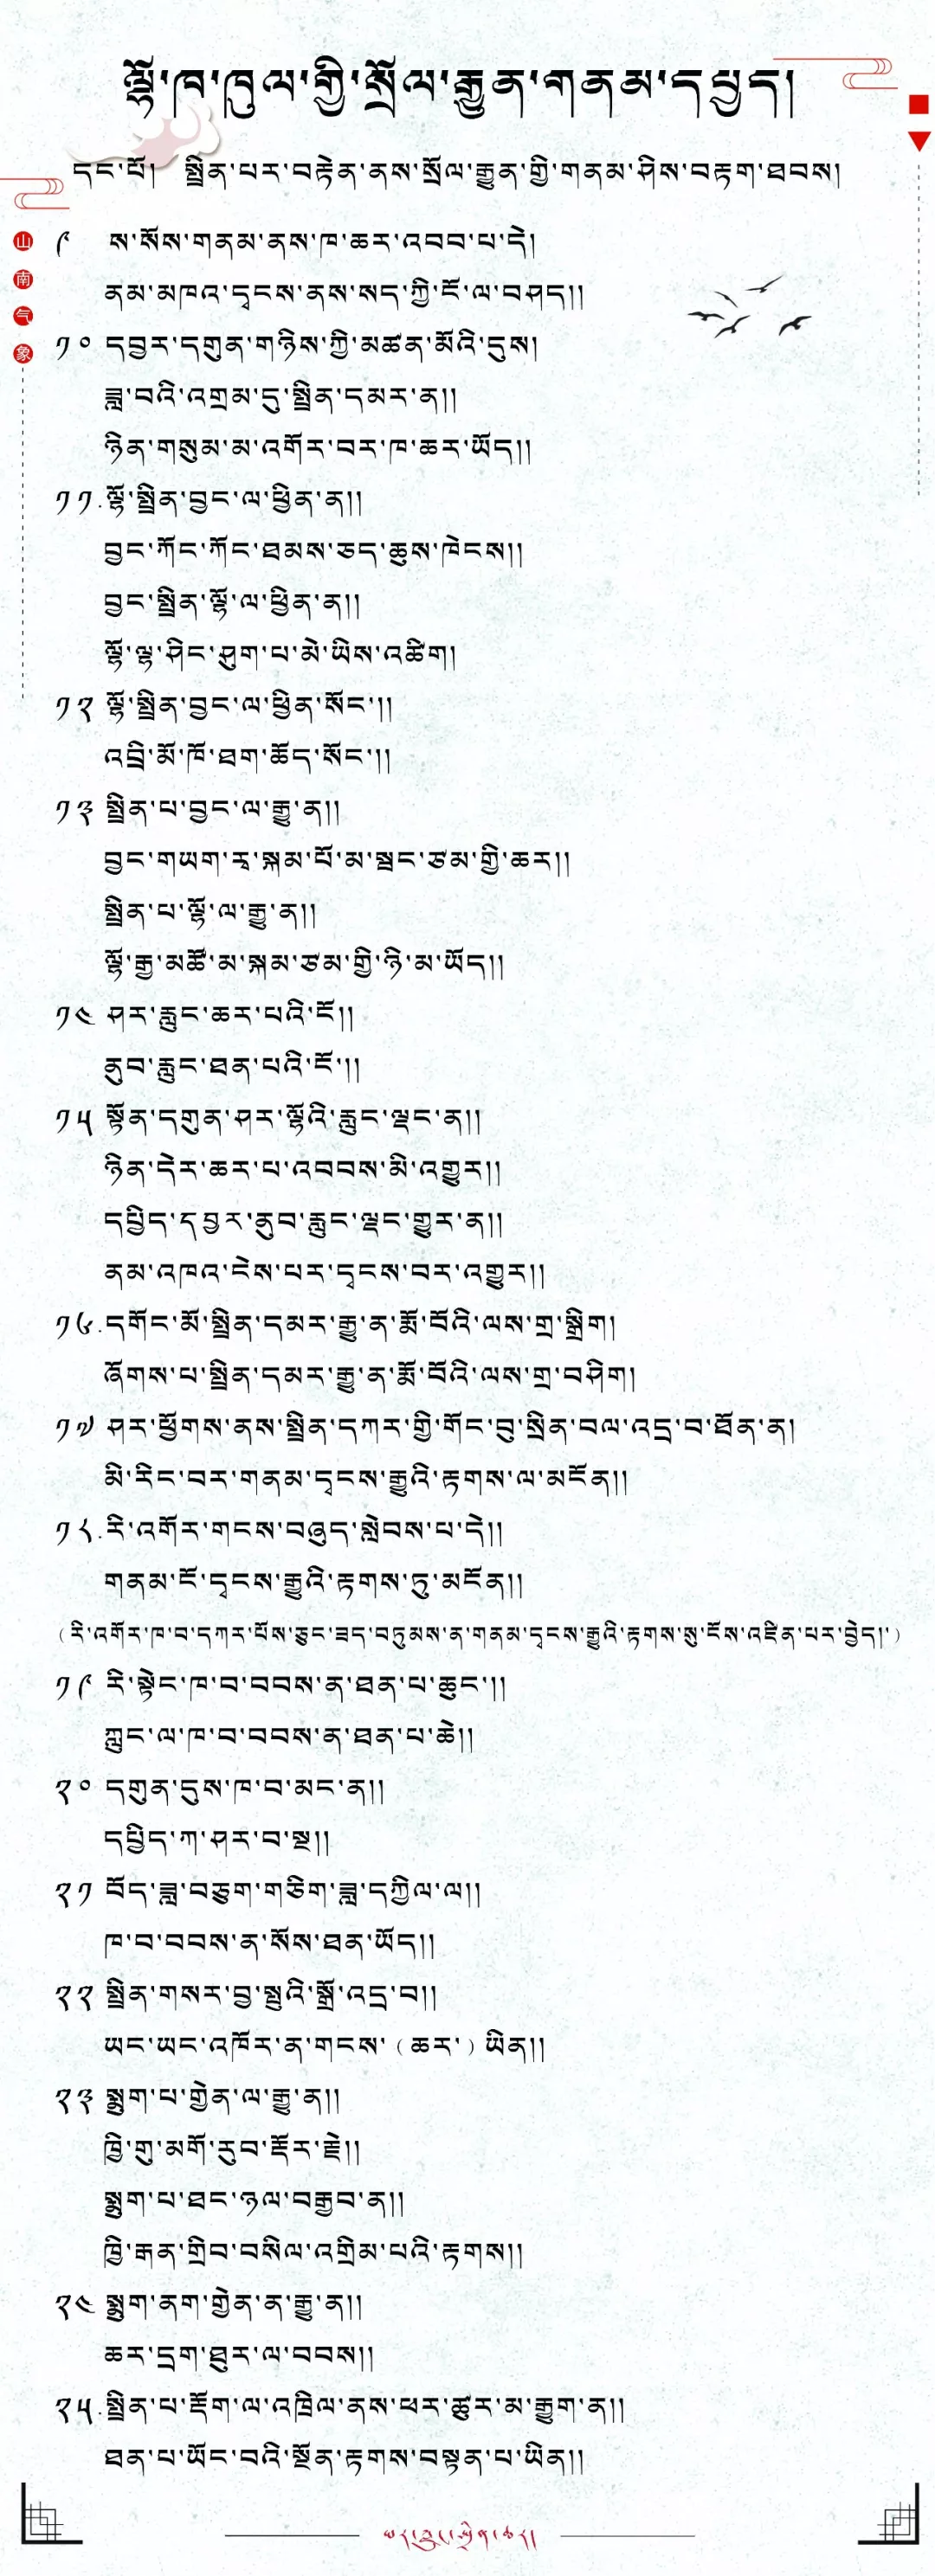 ལྷོ་ཁ་ཁུལ་གྱི་སྲོལ་རྒྱུན་གནམ་དཔྱད།
དང་པོ། སྤྲིན་པར་བརྟེན་ནས་སྲོལ་རྒྱུན་གྱི་གནམ་ཤིས་བརྟག་ཐབས།
山南气象
༩ ས་སོས་གནམ་ནས་ཁ་ཆར་འབབ་པ་དེ།
ནམ་མཁའ་དྭངས་ནས་སད་ཀྱི་ངོ་ལ་བཤད།།
༡༠ དབྱར་དགུན་གཉིས་ཀྱི་མཚན་མོའི་དུས།
ཟླ་བའི་འགྲམ་དུ་སྤྲིན་དམར་ན།།
ཉིན་གསུམ་མ་འགོར་བར་ཁ་ཆར་ཡོད།།
༡༡.ལྷོ་སྤྲིན་བྱང་ལ་ཕྱིན་ན།།
བྱང་ཀོང་ཀོང་ཐམས་ཅད་ཆུས་ཁེངས།།
བྱང་སྤྲིན་ལྷོ་ལ་ཕྱིན་ན།།
ལྷོ་ལྷ་ཤིང་ཤུག་པ་མེ་ཡིས་འཚིག།
༡༢ ལྷོ་སྤྲིན་བྱང་ལ་ཕྱིན་སོང་།།
འབྲི་མོ་ཁོ་ཐག་ཆོད་སོང་།།
༡༣ སྤྲིན་པ་བྱང་ལ་རྒྱུ་ན།།
བྱང་གཡག་རྭ་སྐམ་པོ་མ་སྦང་ཙམ་གྱི་ཆར།།
སྤྲིན་པ་ལྷོ་ལ་རྒྱུ་ན།།
ལྷོ་རྒྱ་མཚོ་མ་སྐམ་ཙམ་གྱི་ཉི་མ་ཡོད།།
༡༤ ཤར་རླུང་ཆར་པའི་ངོ།།
ནུབ་རླུང་ཐན་པའི་ངོ་།།
༡༥ སྟོན་དགུན་ཤར་ལྷོའི་རླུང་ལྡང་ན།།
ཉིན་དེར་ཆར་པ་འབབས་མི་འགྱུར།།
དཔྱིད་དབྱར་ནུབ་རླུང་ལྡང་གྱུར་ན།།
ནམ་འཁའ་ངེས་པར་དྭངས་བར་འགྱུར།།
༡༦.དགོང་མོ་སྤྲིན་དམར་རྒྱུ་ན་རྨོ་བོའི་ལས་གྲ་སྒྲིག།
ཞོགས་པ་སྤྲིན་དམར་རྒྱུ་ན་རྨོ་བོའི་ལས་གྲ་བཤིག།
༡༧ ཤར་ཕྱོགས་ནས་སྤྲིན་དཀར་གྱི་གོང་བུ་སྲིན་བལ་འདྲ་བ་ཐོན་ན།
མི་རིང་བར་གནམ་དྭངས་རྒྱུའི་རྟགས་ལ་མངོན།།
༡༨.རི་འགོར་གངས་བཞུད་སླེབས་པ་དེ།།
གནམ་ངོ་དྭངས་རྒྱུའི་རྟགས་ཏུ་མངོན།།
(རི་འགོར་ཁ་བ་དཀར་པོས་ཅུང་ཟད་བཏུམས་ན་གནམ་དྭངས་རྒྱུའི་རྟགས་སུ་ངོས་འཛིན་པར་བྱེད།་)
༡༩ རི་སྟེང་ཁ་བ་བབས་ན་ཐན་པ་ཆུང་།།
ཀླུང་ལ་ཁ་བ་བབས་ན་ཐན་པ་ཆེ།།
༢༠ དགུན་དུས་ཁ་བ་མང་ན།།
དཔྱིད་ཀ་ཤར་བ་སྔ།།
༢༡ བོད་ཟླ་བཅུག་གཅིག་ཟླ་དཀྱིལ་ལ།།
ཁ་བ་བབས་ན་སོས་ཐན་ཡོད།།
༢༢ སྤྲིན་གསར་བྱ་སྤུའི་སྒྲོ་འདྲ་བ།།
ཡང་ཡང་འཁོར་ན་གངས་(ཆར་)ཡིན།།
༢༣ སྨུག་པ་གྱེན་ལ་རྒྱུ་ན།།
ཁྱི་གུ་མགོ་རུབ་རྡོར་རྗེ།།
སྨུག་པ་ཐང་ཉལ་བརྒྱབ་ན།།
ཁྱི་རྒན་གྲིབ་བསིལ་འགྲིམ་པའི་རྟགས།།
༢༤ སྨུག་ནག་གྱེན་ན་རྒྱུ་ན།།
ཆར་དྲག་ཐུར་ལ་བབས།།
༢༥.སྤྲིན་པ་རྡོག་ལ་འཁྲིལ་ནས་ཕར་ཚུར་མ་རྒྱུག་ན།།
ཐན་པ་ཡོང་བའི་སྔོན་རྟགས་བསྟན་པ་ཡིན།།